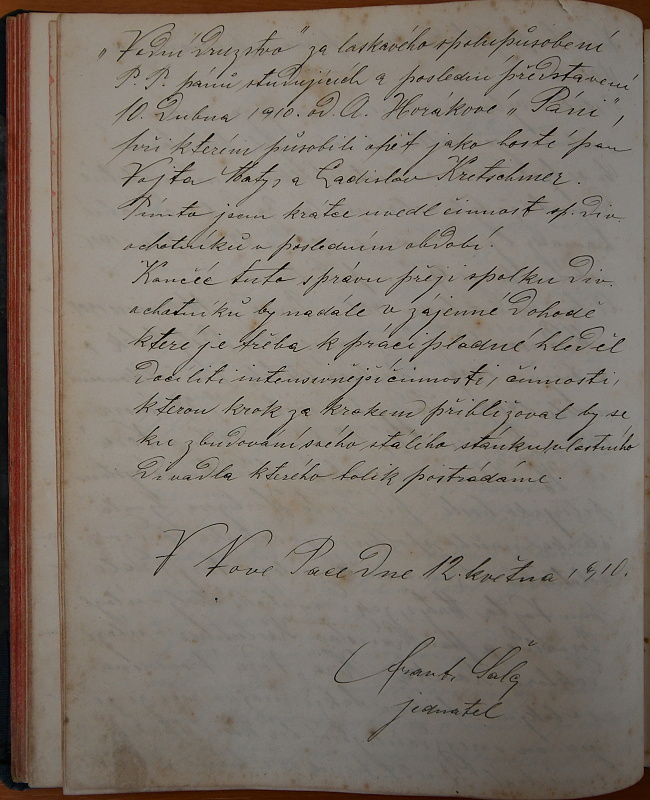 „Vodní družstvo" za laskavého spolupůsobení
P. P. pánů studujících a poslední představení
10. Dubna 1910. od A. Horákové „Páni",
při kterém působili opět jako hosté pan
Vojta Matys a Ladislav Kretschmer.
Tímto jsem krátce uvedl činnost sp. div.
ochotníků v posledním období.
Končíc tuto správu přeji spolku div.
ochotníků by nadále v zájemné dohodě
které je třeba k práci plodné hleděl
docíliti intensivnější činnosti, činnosti,
kterou krok za krokem přibližoval by se
ku zbudování svého stálého stánku vlastního
Divadla kterého tolik postrádáme.
V Nové Pace dne 12. května 1910.
Frant.
jednatel